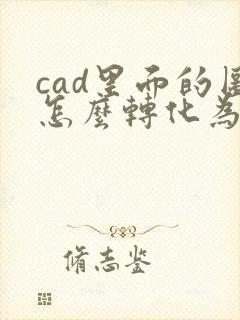 cad里面的
怎麼轉化為
脩志鉴